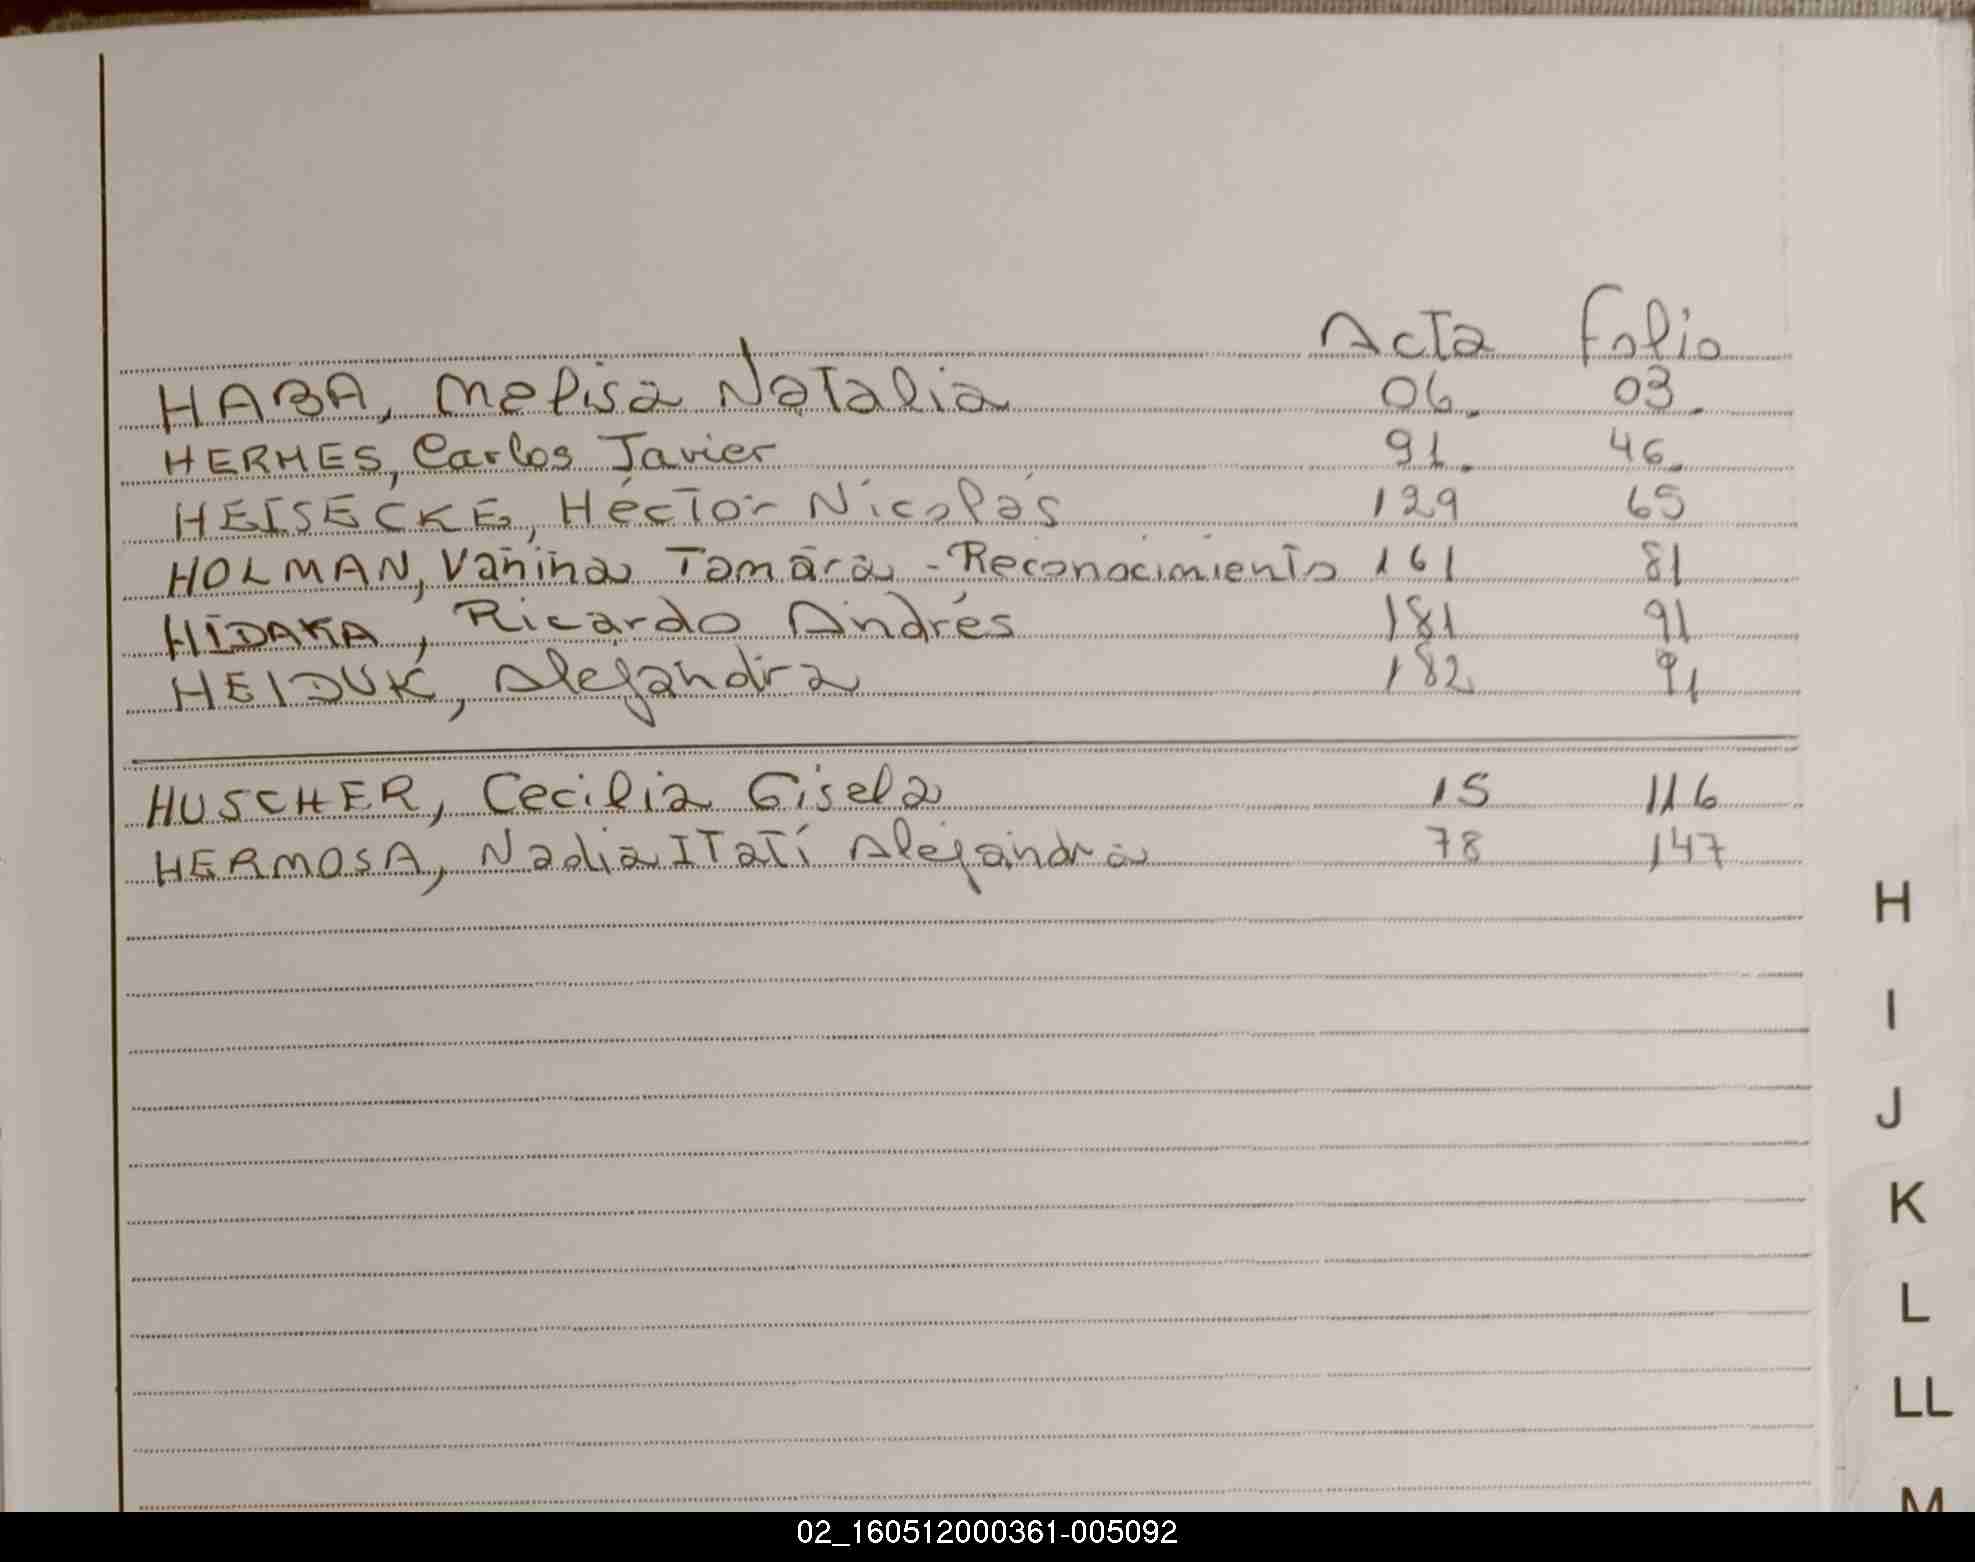 Acta Folio
HABA, Melisa Natalia 06. 03.
HERMES, Carlos Javier 91. 46.
HEISECKE, Héctor Nicolás 129 65
HOLMAN, Vanina Tamara - Reconocimiento 161 81
HIDAKA, Ricardo Andrés 181 91
HEIDUK, Alejandra 182 91
HUSCHER, Cecilia Gisela 15 116
HERMOSA, Nadia ITatí Alejandra 78 147
H
I
J
K
L
LL
M
02_160512000361-005092